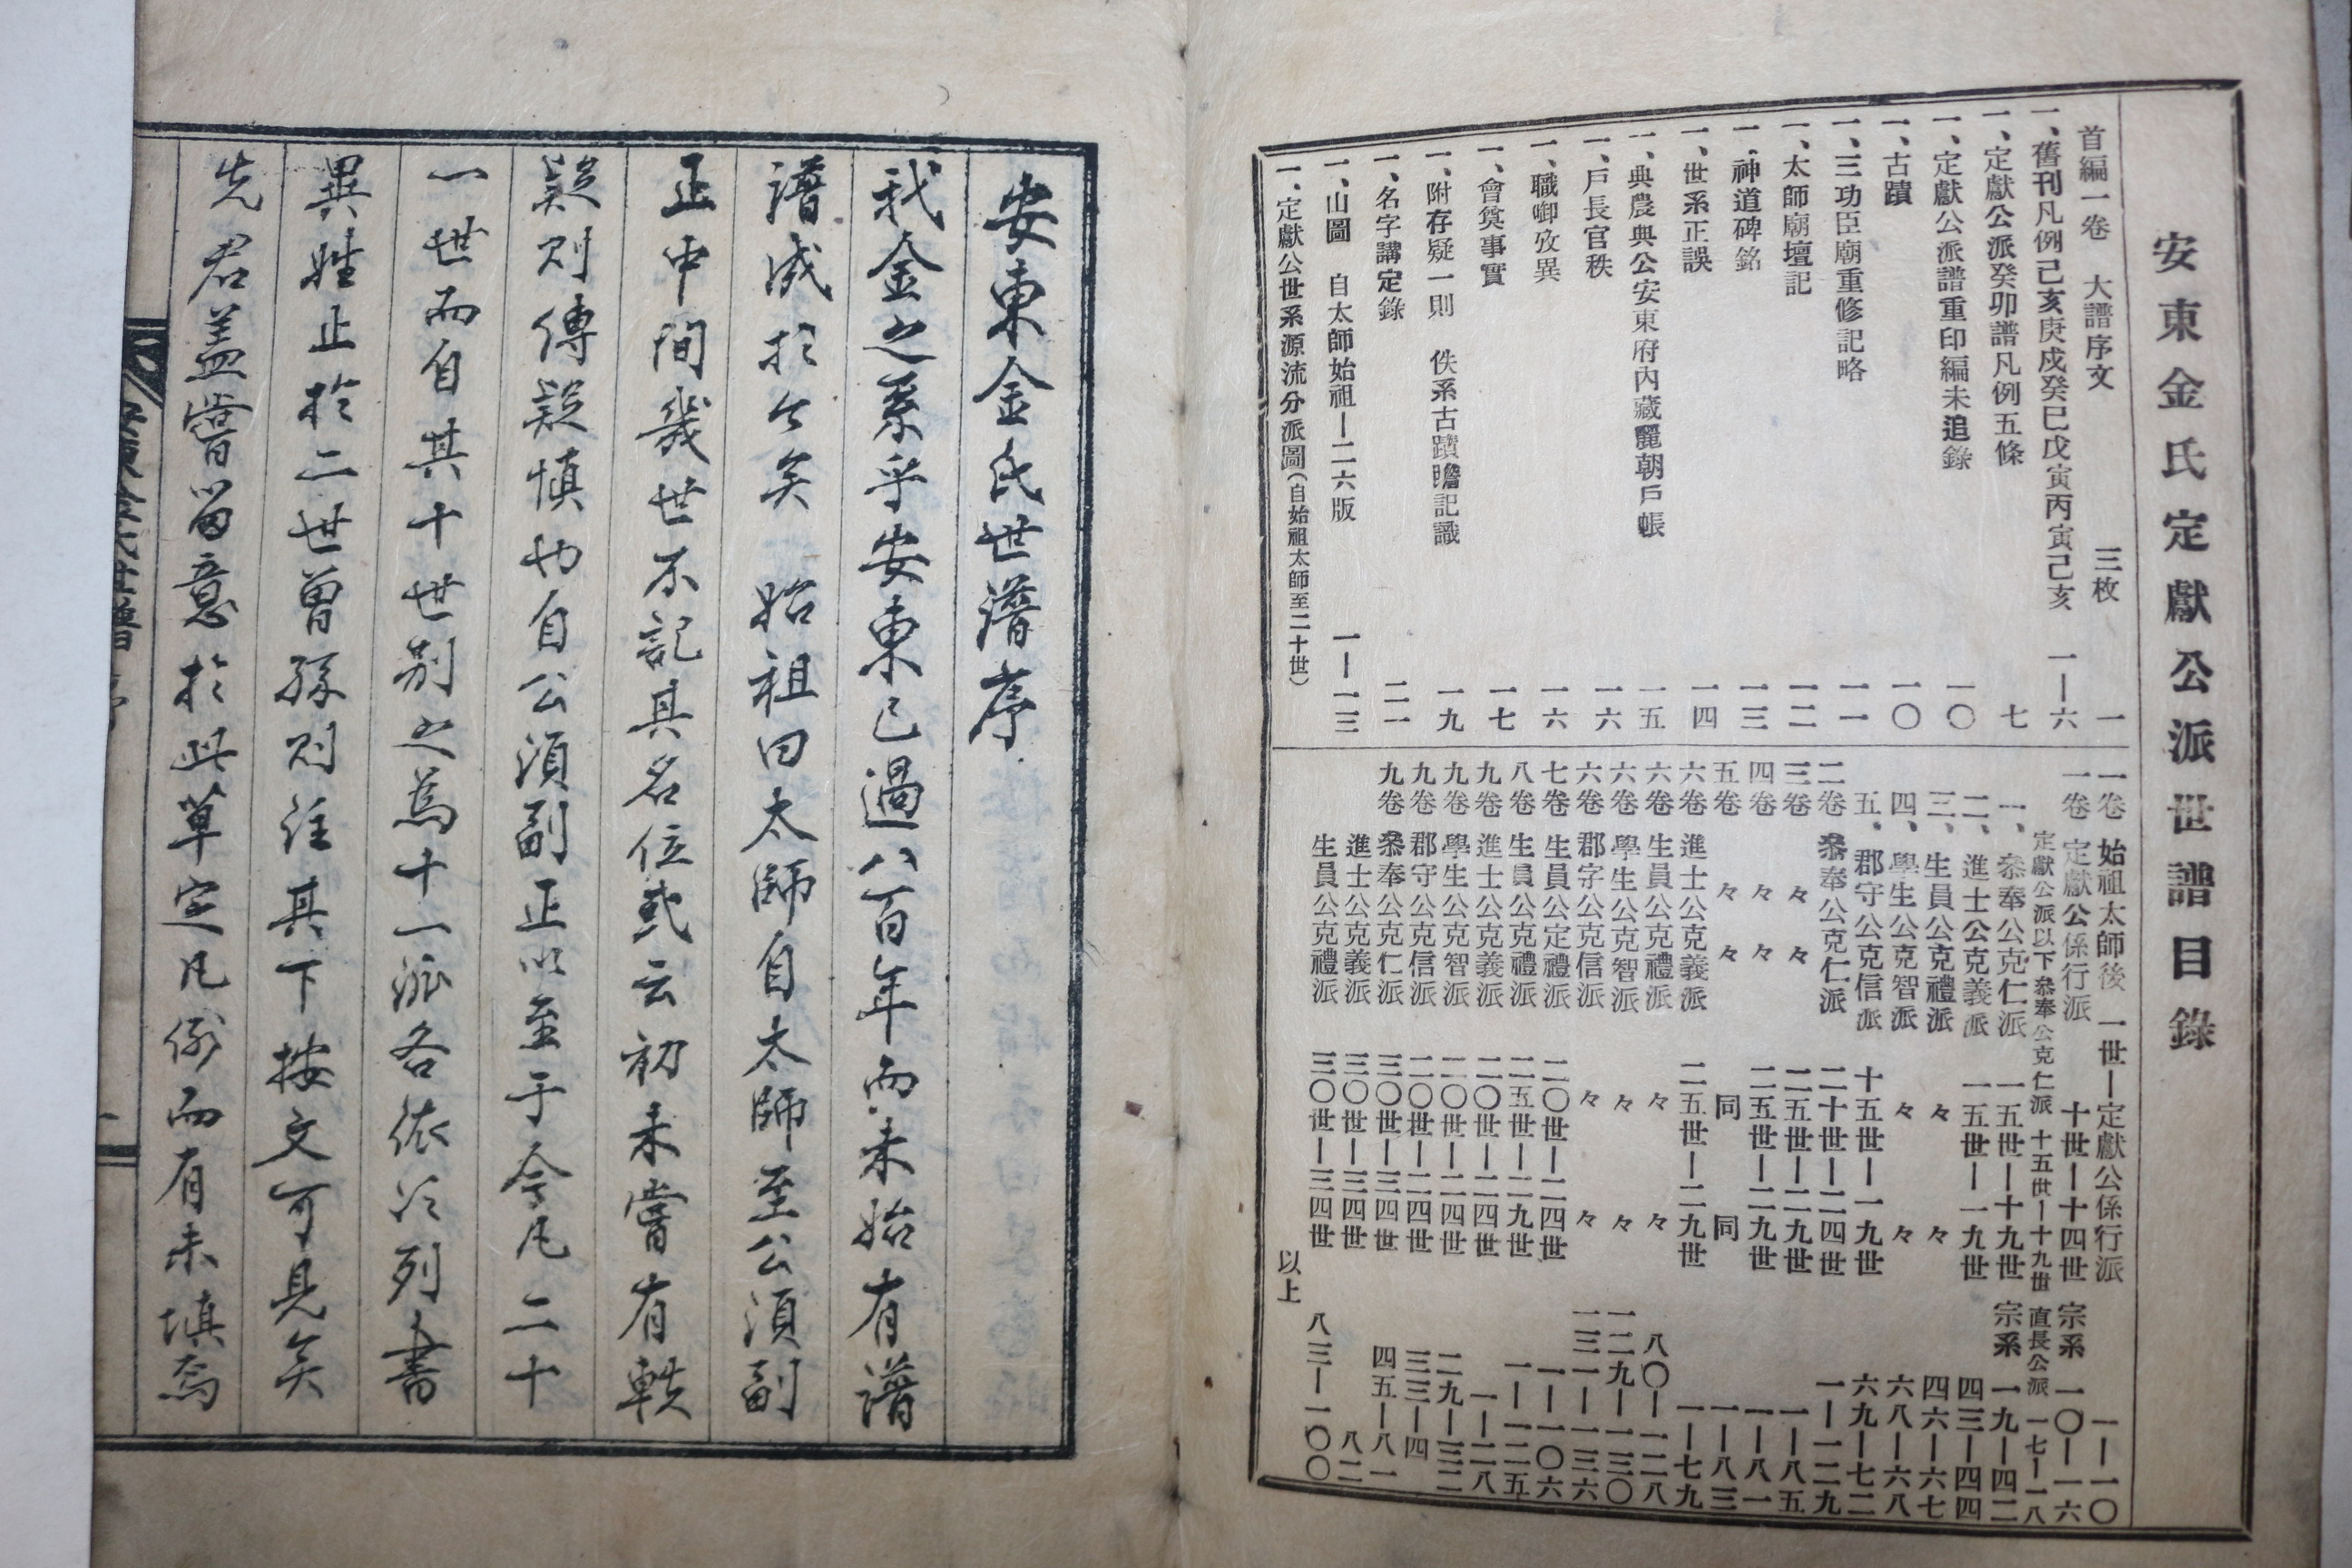 安東金氏定獻公派世譜目錄
首編一卷 大譜序文 三枚 一
一、舊刊凡例己亥庚戍癸巳戊寅丙寅己亥 一—六
一、定獻公派癸卯譜凡例五條 七
一、定獻公派譜重印編未追錄 一〇
一、古蹟 一〇
一、三功臣廟重修記略 一一
一、太師廟壇記 一二
一、神道碑銘 一三
一、世系正誤 一四
一、典農典公安東府內藏麗朝戶帳 一五
一、戶長官秩 一六
一、職啣攷異 一六
一、會奠事實 一七
一、附存疑一則 佚系古蹟贍記識 一九
一、名字講定錄 二一
一、山圖 自太師始祖—二六版 一—一三
一、定獻公世系源流分派圖(自始祖太師至二十世)
一卷 始祖太師後 一世—定獻公係行派 一—一〇
一卷 定獻公係行派 十世—十四世 宗系 一〇—一六
定獻公派以下叅奉公克仁派 十五世—十九世 直長公派 一七—一八
一、叅奉公克仁派 一五世—十九世 宗系 一九—四二
二、進士公克義派 一五世—一九世 四三—四四
三、生員公克禮派 々 々 四六—六七
四、學生公克智派 々 々 六八—六八
五、郡守公克信派 十五世—一九世 六九—七二
二卷 叅奉公克仁派 二十世—二四世 一—一二九
三卷 々 々 二五世—二九世 一—八五
四卷 々 々 二五世—二九世 一—八一
五卷 々 々 同 同 一—八三
六卷 進士公克義派 二五世—二九世 一—七九
六卷 生員公克禮派 々 々 八〇—一二八
六卷 學生公克智派 々 々 一二九—一三〇
六卷 郡守公克信派 々 々 一三一—一三六
七卷 生員公定禮派 二〇世—二四世 一—一〇六
八卷 生員公克禮派 二五世—二九世 一—一二五
九卷 進士公克義派 二〇世—二四世 一—二八
九卷 學生公克智派 二〇世—二四世 二九—三二
九卷 郡守公克信派 二〇世—二四世 三三—四
九卷 叅奉公克仁派 三〇世—三四世 四五—八一
進士公克義派 三〇世—三四世 八二
生員公克禮派 三〇世—三四世 八三—一〇〇
以上
安東金氏世譜序
我金之系乎安東已過八百年而未始有譜
譜成於今矣 始祖曰太師自太師至公須副
正中間幾世不記其名位或云初未嘗有軼
疑則傳疑愼也自公須副正以至于今凡二十
一世而自其十世別之爲十一派各依次列書
異姓止於二世曾孫則註其下按文可見矣
先君盖嘗留意於此草定凡例而有未塡焉
安東金氏世譜 序 一